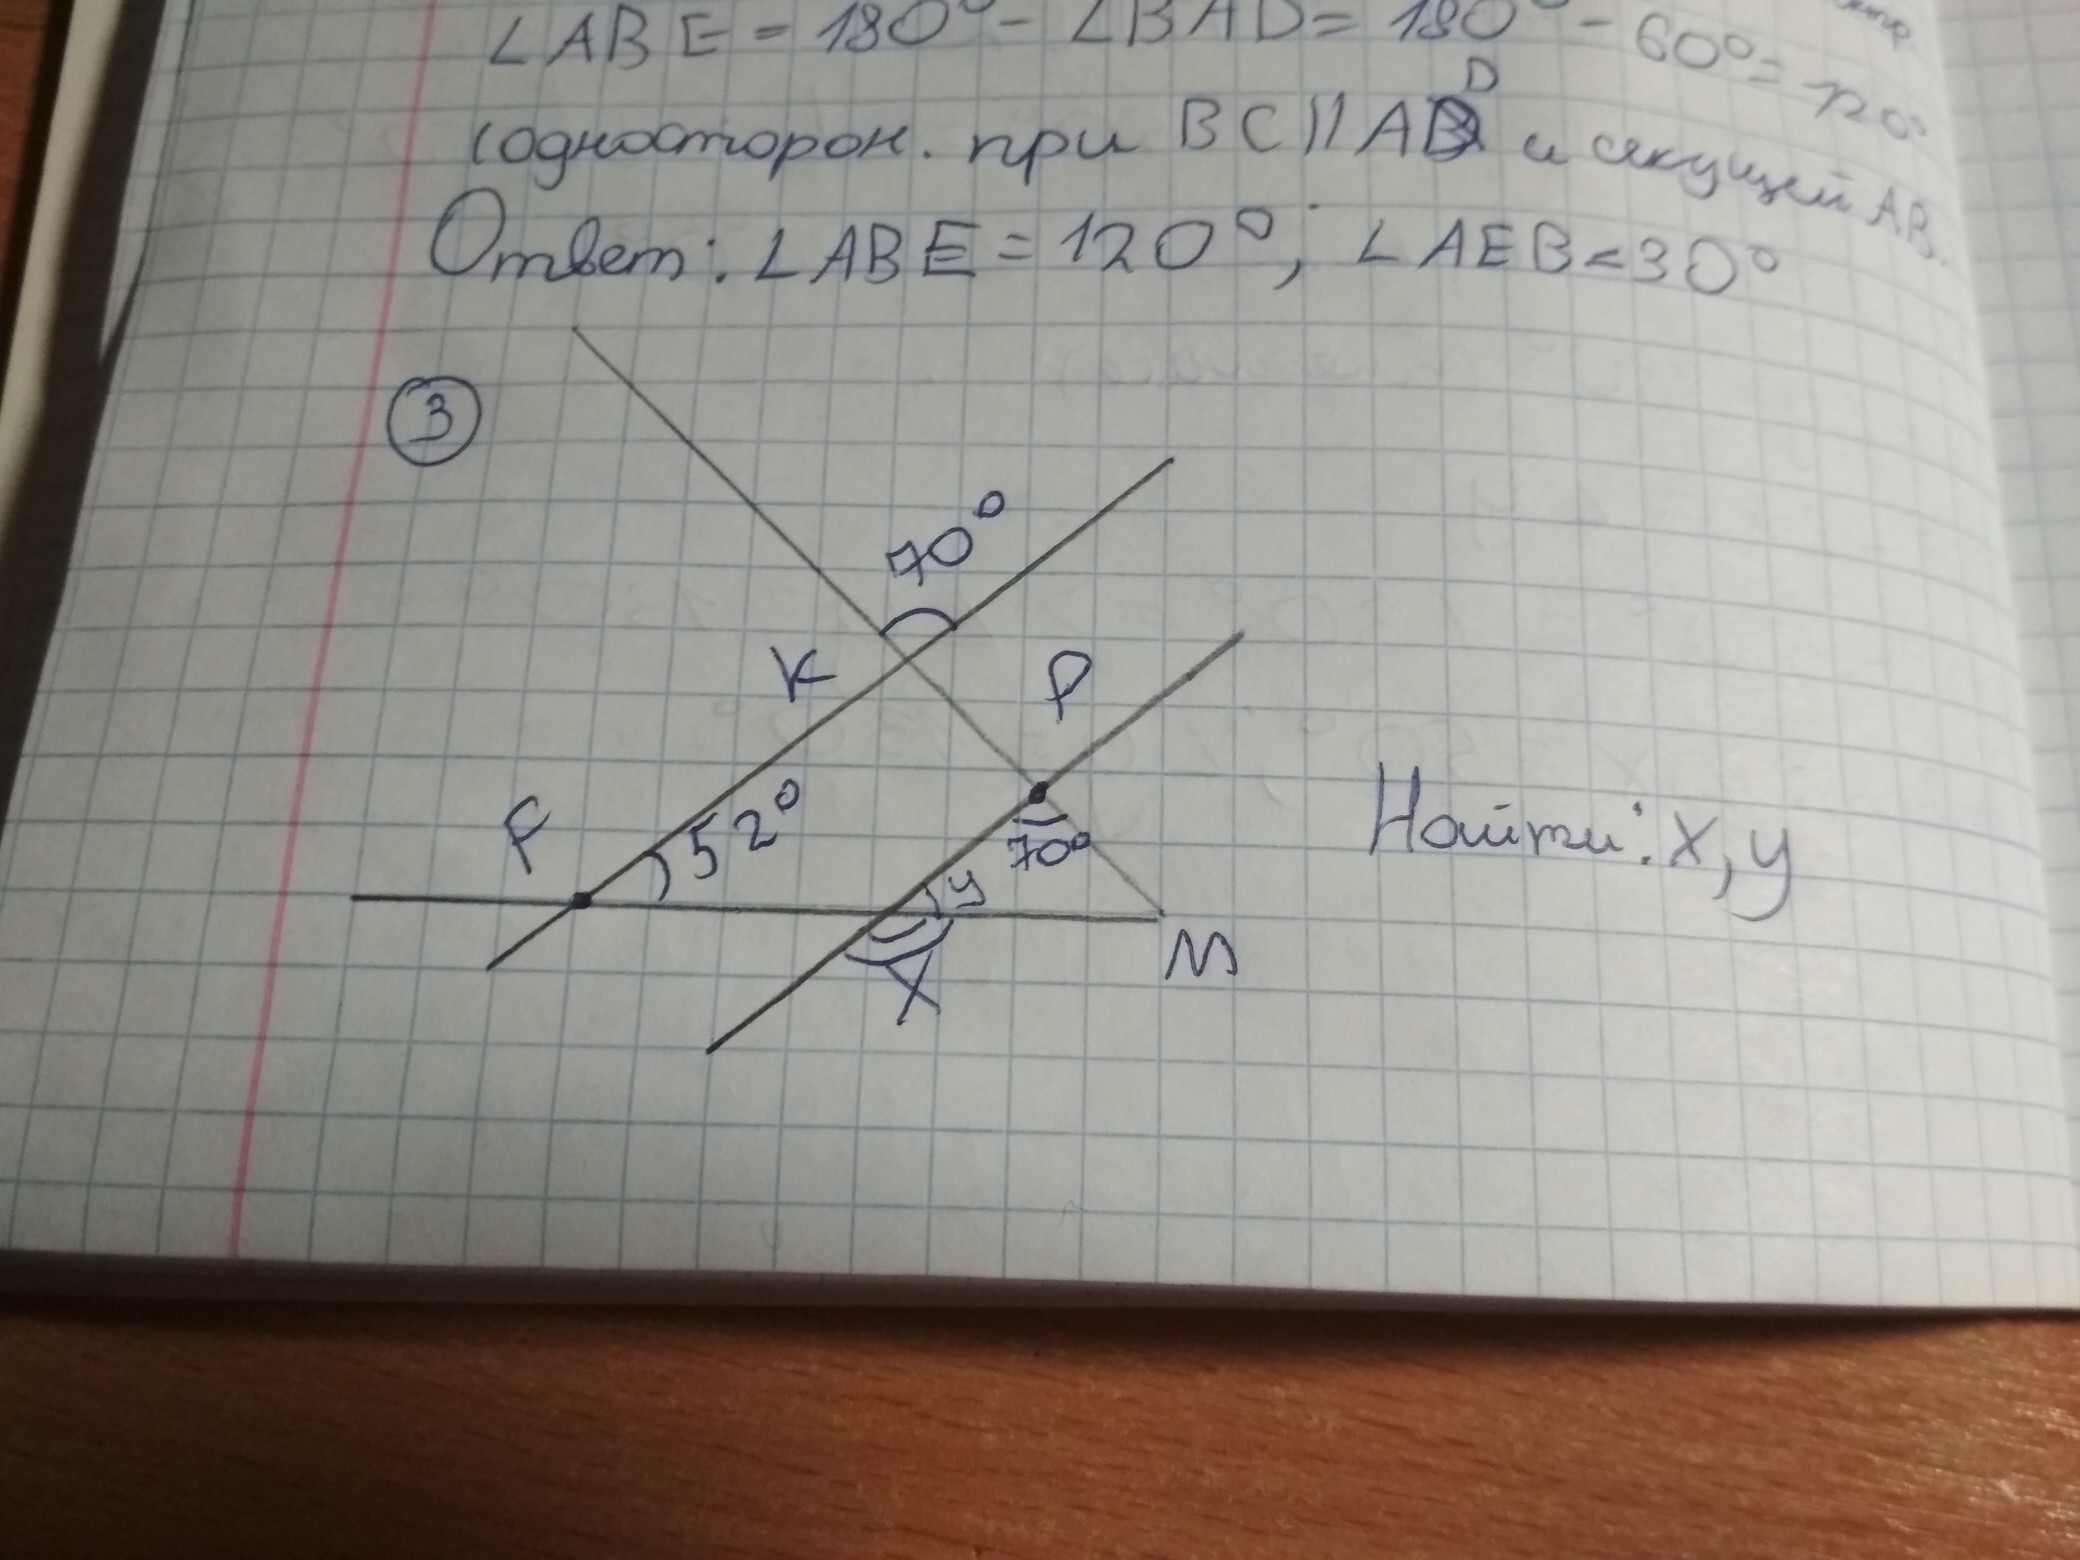 ∠ABE = 180° - ∠BAD = 180° - 60° = 120°
D
(односторон. при BC || AD и секущей AB.
Ответ: ∠ABE = 120°; ∠AEB = 30°
3
70°
K
P
F
52°
70°
Найти: x, y
y
M
X